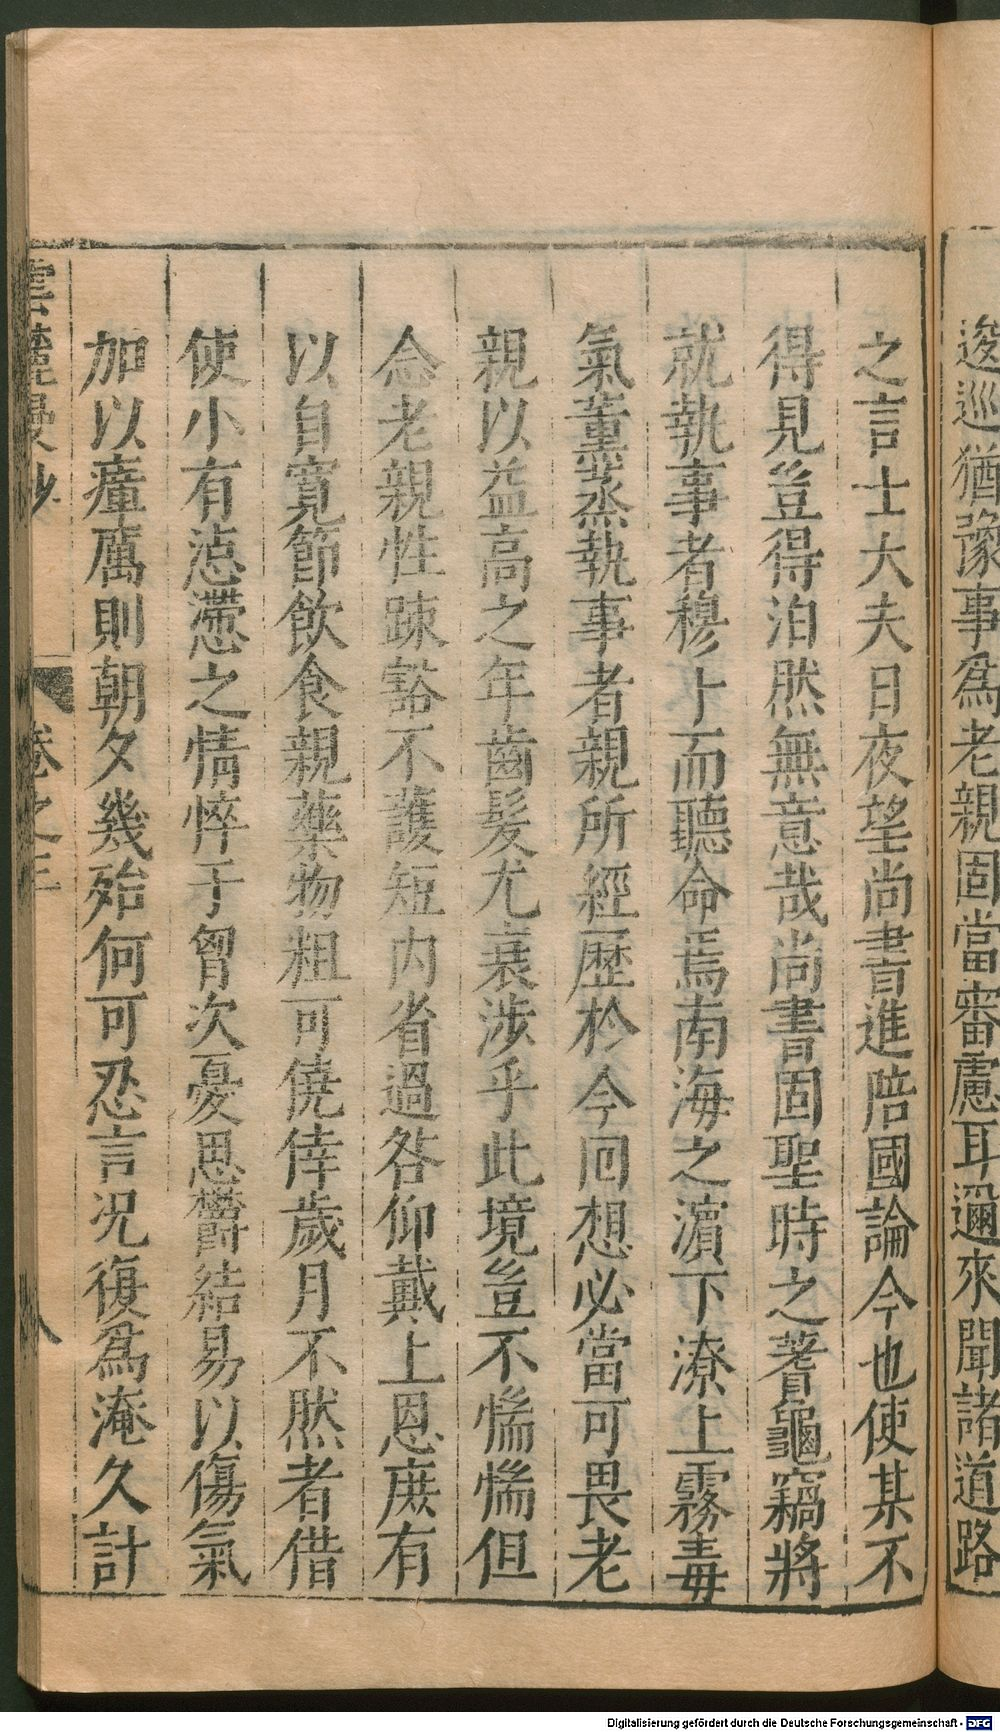 逡巡猶豫事為老親固當審慮耳邇來聞諸道路
之言士大夫日夜望尚書進陪國論今也使某不
得見豈得泊然無意哉尚書固聖時之蓍龜竊將
就執事者穆卜而聽命焉南海之濵下潦上霧毒
氣薰蒸執事者親所經歷於今囘想必當可畏老
親以益高之年齒髮尤衰涉乎此境豈不惴惴但
念老親性疎豁不護短内省過咎仰戴上恩庶有
以自寛節飲食親藥物粗可僥倖歲月不然者借
使小有滯之情悴于胷次憂思欝結易以傷氣
加以瘴厲則朝夕幾殆何可忍言況復為淹久計
雲麓漫抄 卷之三 八
Digitalisierung gefördert durch die Deutsche Forschungsgemeinschaft - DFG